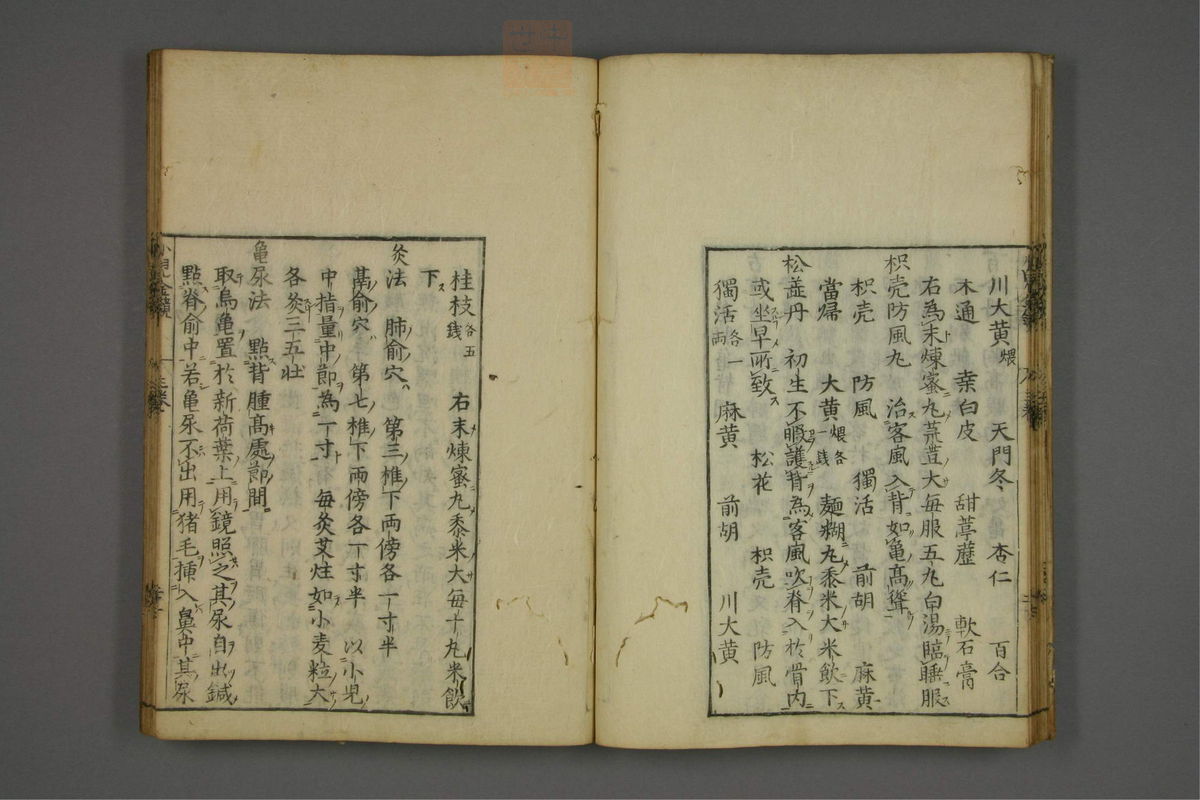 川大黄煨 天門冬 杏仁 百合
木通 桒白皮 甜葶藶 軟石膏
右為末煉蜜丸芡荳大毎服五丸白湯臨睡服
枳壳防風丸 治客風入背如亀高聳
枳壳 防風 獨活 前胡 麻黄
當帰 大黄煨各一銭 麺糊丸黍米大米飲下
松蕋丹 初生不暇護背為客風吹脊入於骨内
或坐早所致
獨活各一両 麻黄 前胡 川大黄
松花 枳壳 防風
桂枝各五銭 右末煉蜜丸黍米大毎十丸米飲
下
灸法 肺俞穴 第三椎下両傍各一寸半
膈俞穴 第七椎下両傍各一寸半 以小児
中指量中節為一寸 毎灸艾炷如小麦粒大
各灸三五壮
亀尿法 點背腫高處節間
取烏亀置於新荷葉上用鏡照之其尿自出鍼
點脊俞中若亀尿不出用猪毛挿入鼻中其尿